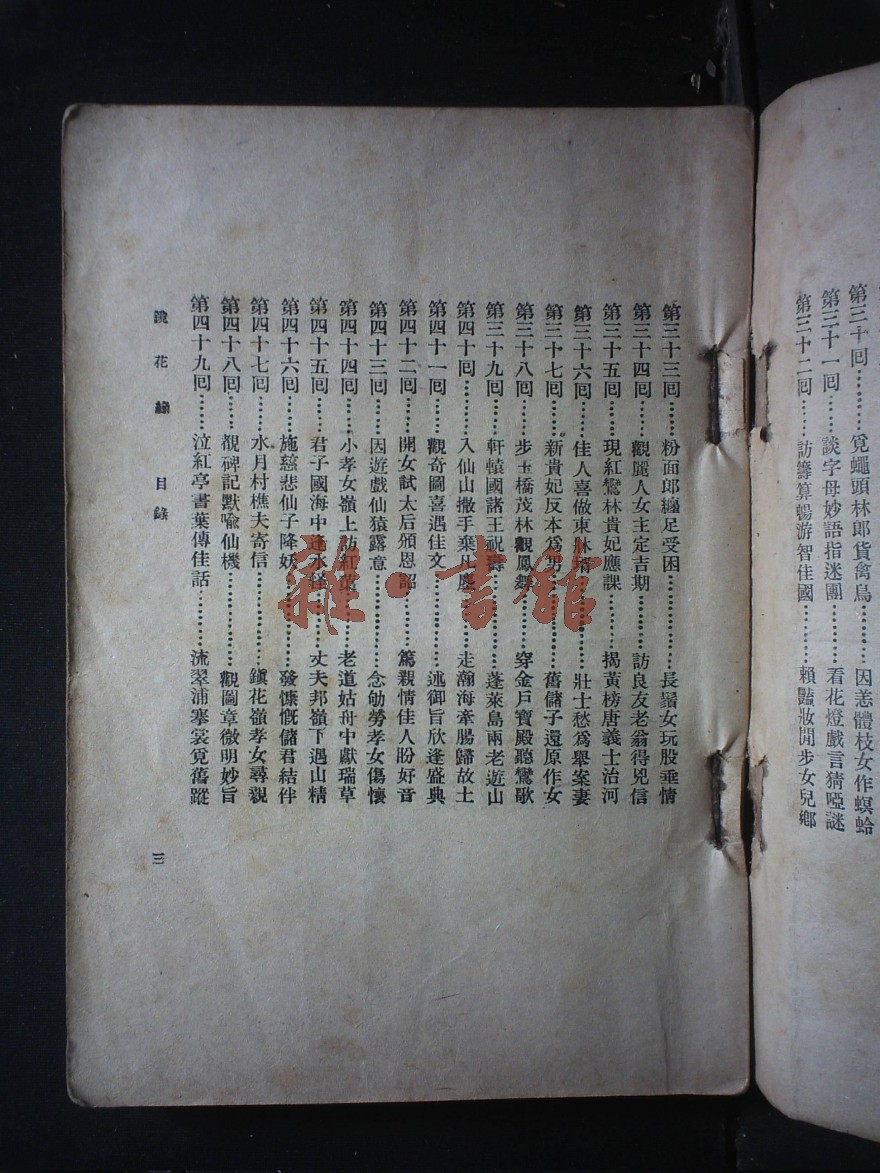 第三十回………覓蠅頭林郎貨禽鳥………因恙體枝女作螟蛉
第三十一回……談字母妙語指迷團………看花燈戲言猜啞謎
第三十二回……訪籌算暢游智佳國………賴豔妝閒步女兒鄉
第三十三回……粉面郎纏足受困………長鬚女玩股垂情
第三十四回……觀麗人女主定吉期………訪良友老翁得兇信
第三十五回……現紅鸞林貴妃應課………揭黃榜唐義士治河
第三十六回……佳人喜做東牀壻………壯士愁爲舉案妻
第三十七回……新貴妃反本爲男………舊儲子還原作女
第三十八回……步玉橋茂林觀鳳舞………穿金戶寶殿聽鸞歌
第三十九回……軒轅國諸王祝壽………蓬萊島兩老遊山
第四十回………入仙山撒手棄凡塵………走瀚海牽腸歸故土
第四十一回……觀奇圖喜遇佳文………述御旨欣逢盛典
第四十二回……開女試太后頒恩詔………篤親情佳人盼好音
第四十三回……因遊戲仙猿露意………念劬勞孝女傷懷
第四十四回……小孝女嶺上訪紅蕖………老道姑舟中獻瑞草
第四十五回……君子國海中逢水怪………丈夫邦嶺下遇山精
第四十六回……施慈悲仙子降妖………發慷慨儲君結伴
第四十七回……水月村樵夫寄信………鏡花嶺孝女尋親
第四十八回……覩碑記默喩仙機………觀圖章微明妙旨
第四十九回……泣紅亭書葉傳佳話………流翠浦搴裳覓舊蹤
鏡花緣　目錄　三
雜·書館